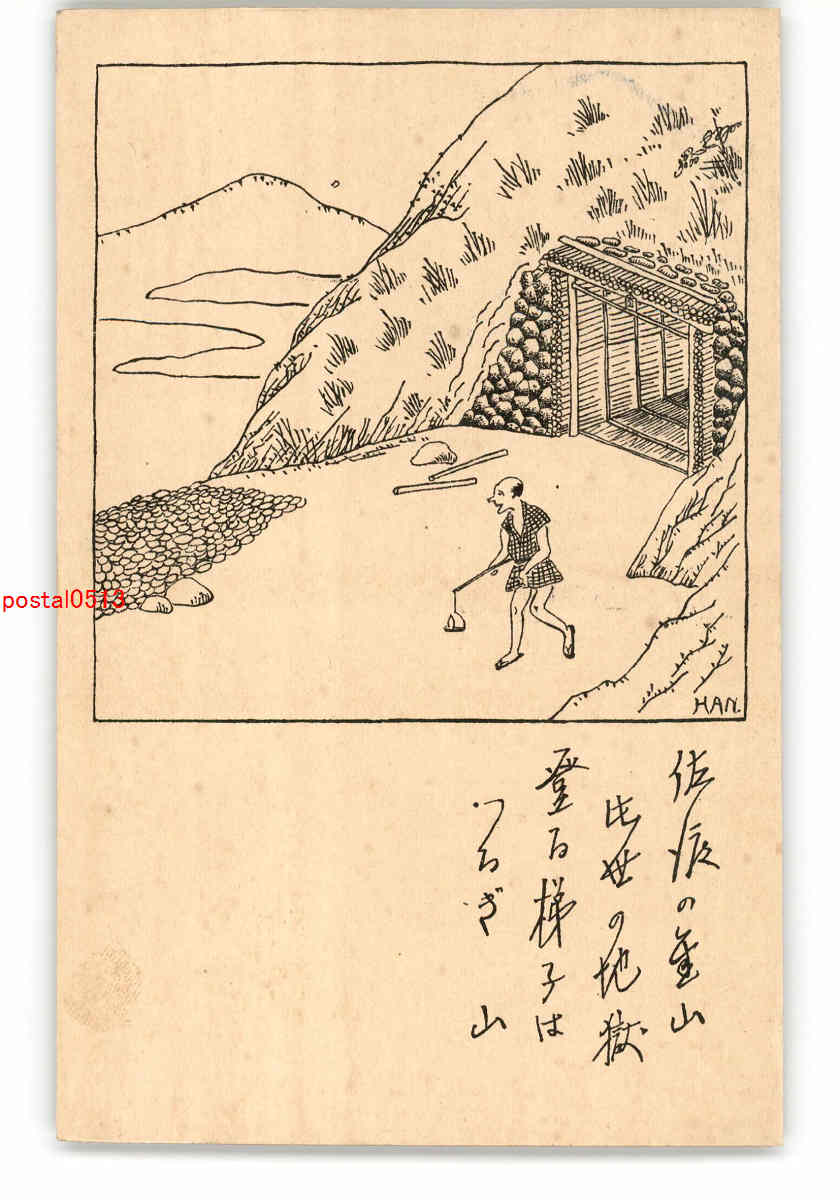 HAN.
佐渡の金山
此世の地獄
登る梯子は
つるぎ山
postal0513